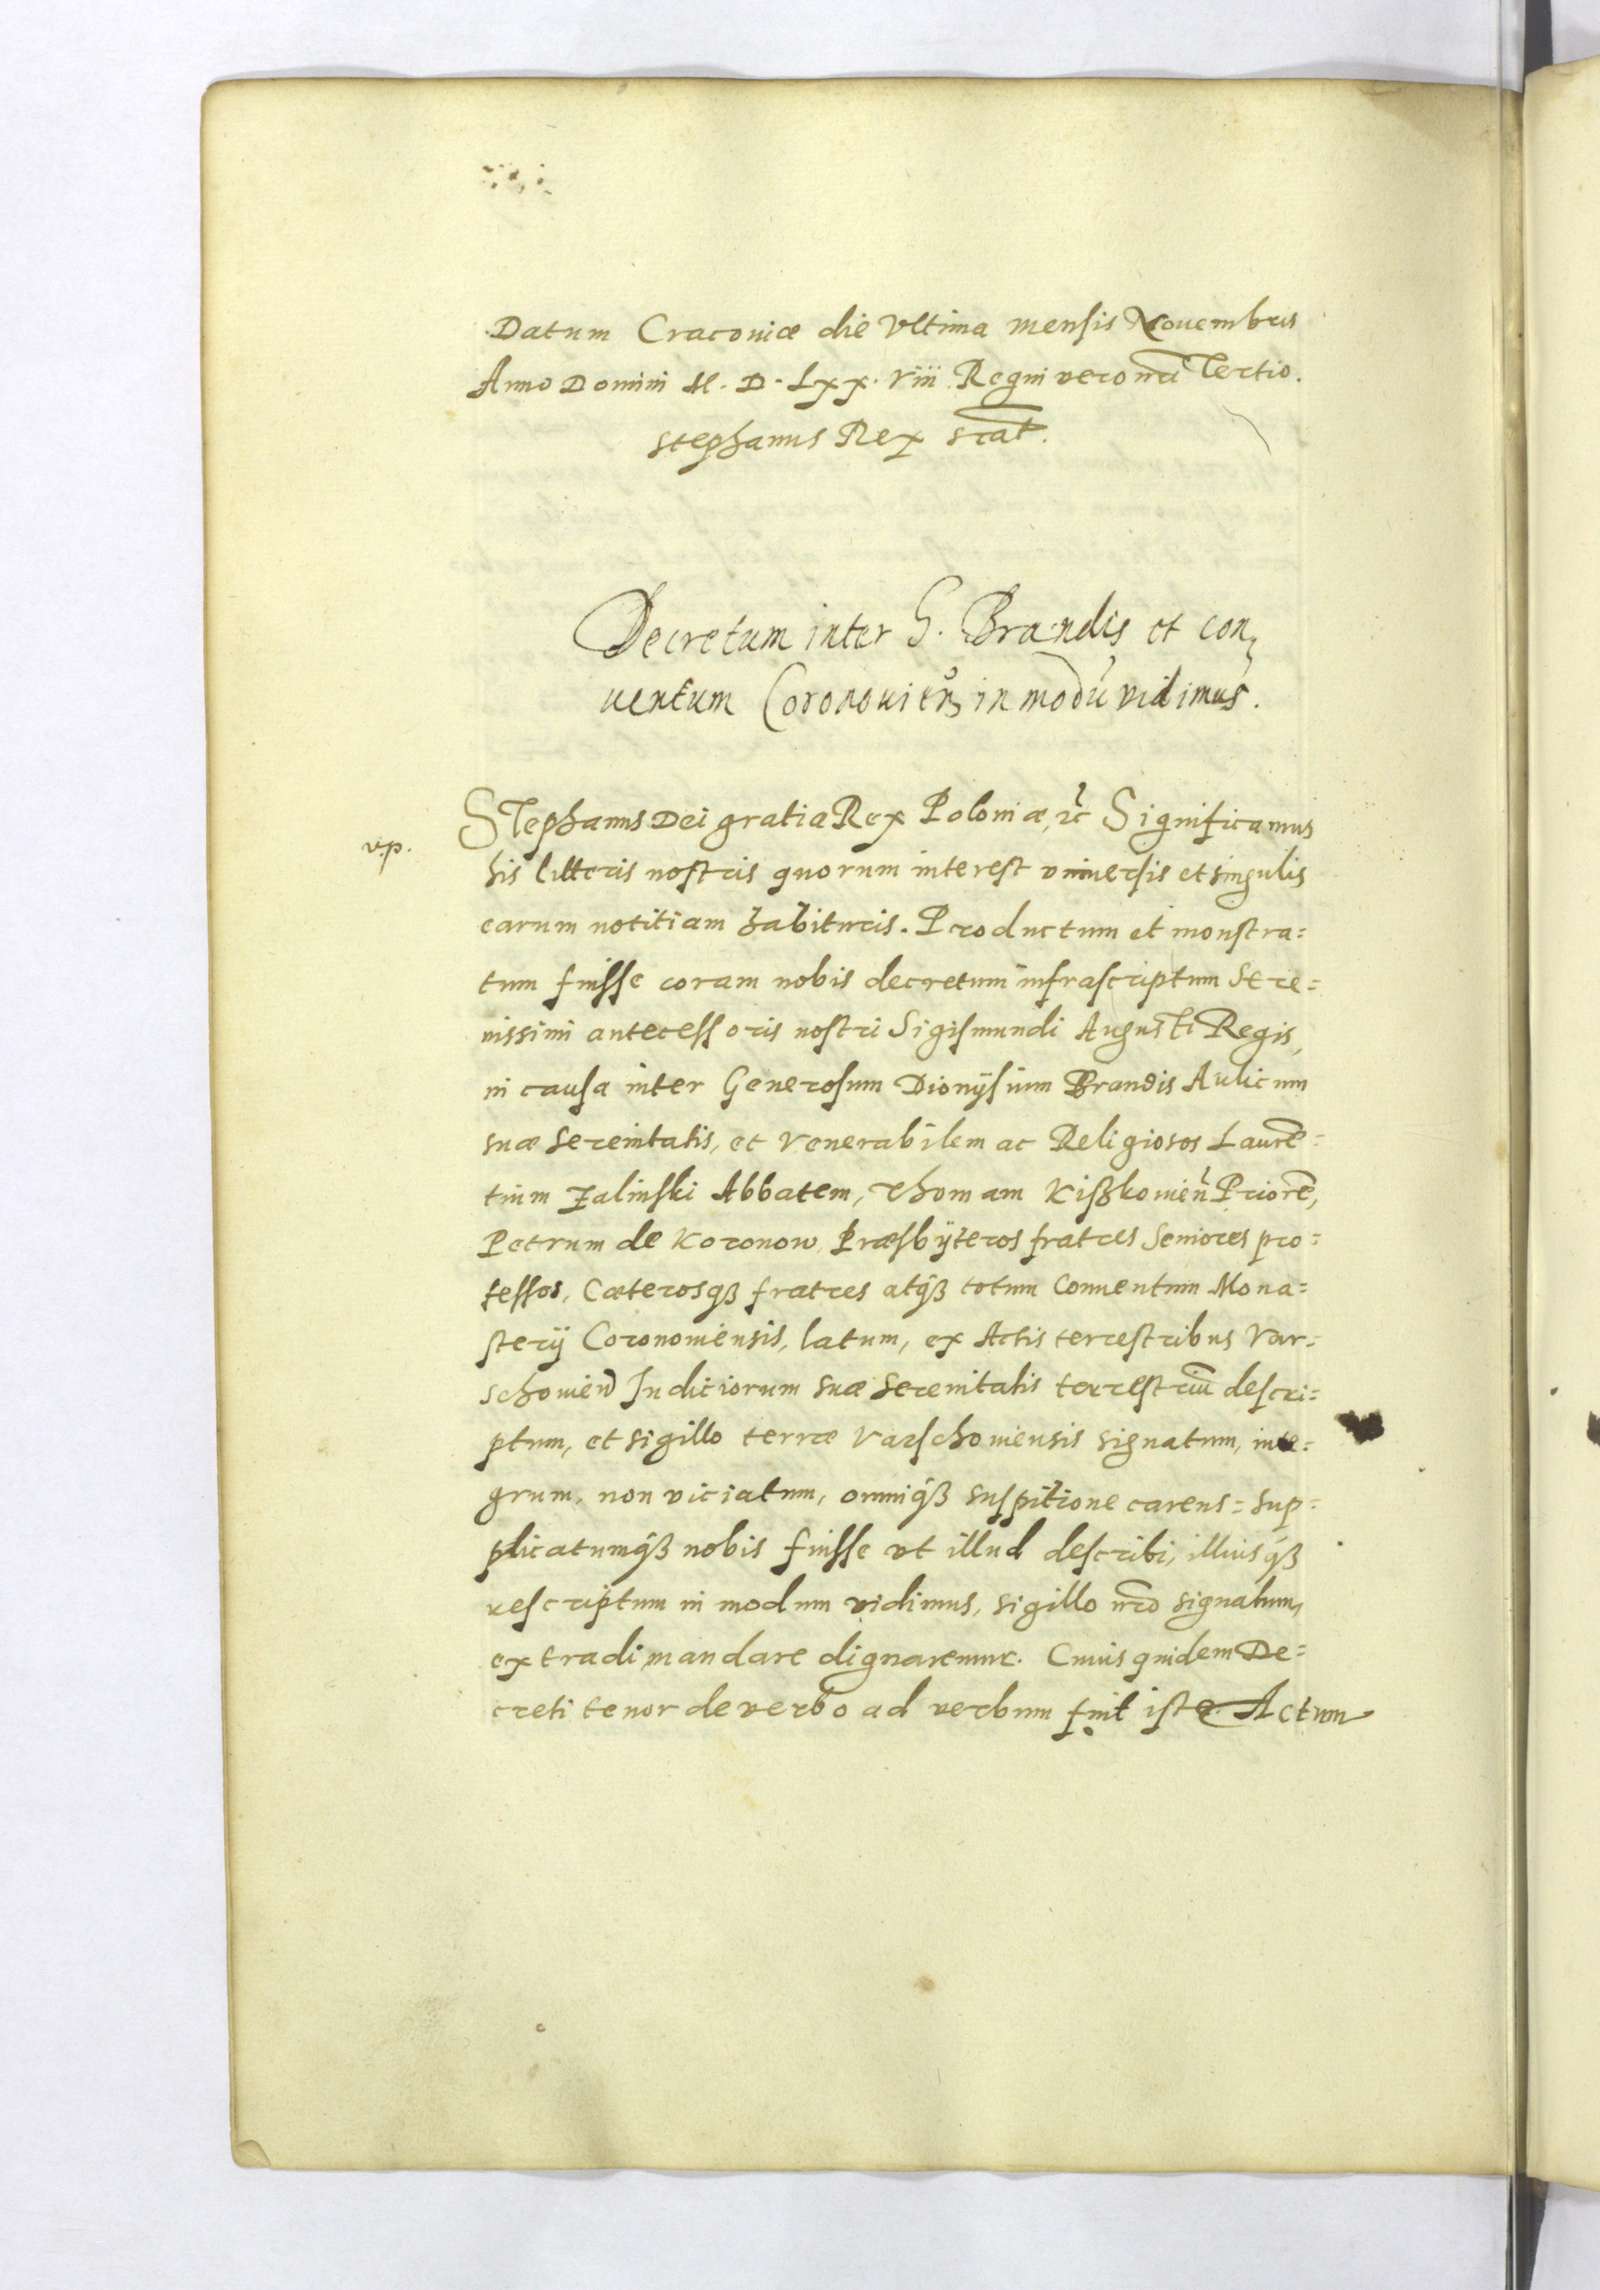 Datum Cracoviæ die Vltima mensis Nouembris
Anno Domini M. D. Lxx. viii Regni vero nri Tertio.
Stephanus Rex scat.
Decretum inter G. Brandis et con
uentum Coronouien in modũ vidimus.
Stephanus Dei gratia Rex Poloniæ, etc Significamus
vp.
his litteris nostris quorum interest vniuersis et singulis
earum notitiam habituris. Productum et monstra=
tum fuisse coram nobis decretum infrascriptum Sere=
nissimi antecessoris nostri Sigismundi Augusti Regis,
in causa inter Generosum Dionÿsium Brandis Aulicum
suæ Serenitatis, et Venerabilem ac Religiosos Laurẽ=
tium Zalinski Abbatem, Thomam Kißkowien Priorẽ,
Petrum de Koronow, Præsbÿteros fratres Seniores pro=
fessos, Cæterosqß fratres atqß totum Conuentum Mona=
sterij Coronouiensis, latum, ex Actis terrestribus Var=
schouien Iudiciorum suæ Serenitatis terrestriũ descri=
ptum, et sigillo terræ Varschouiensis signatum, inte=
grum, non viciatum, omniqß suspitione carens= Sup=
plicatumqß nobis fuisse vt illud describi, illiusqß
rescriptum in modum vidimus, sigillo nrõ signatum,
extradi mandare dignaremur. Cuius quidem De=
creti tenor de verbo ad verbum fuit iste. Actum